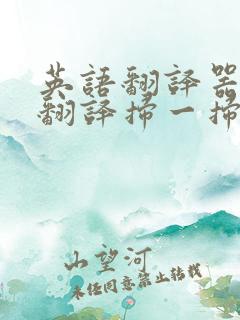 英語翻譯器
翻譯掃一掃
山望河
未經同意禁止轉載